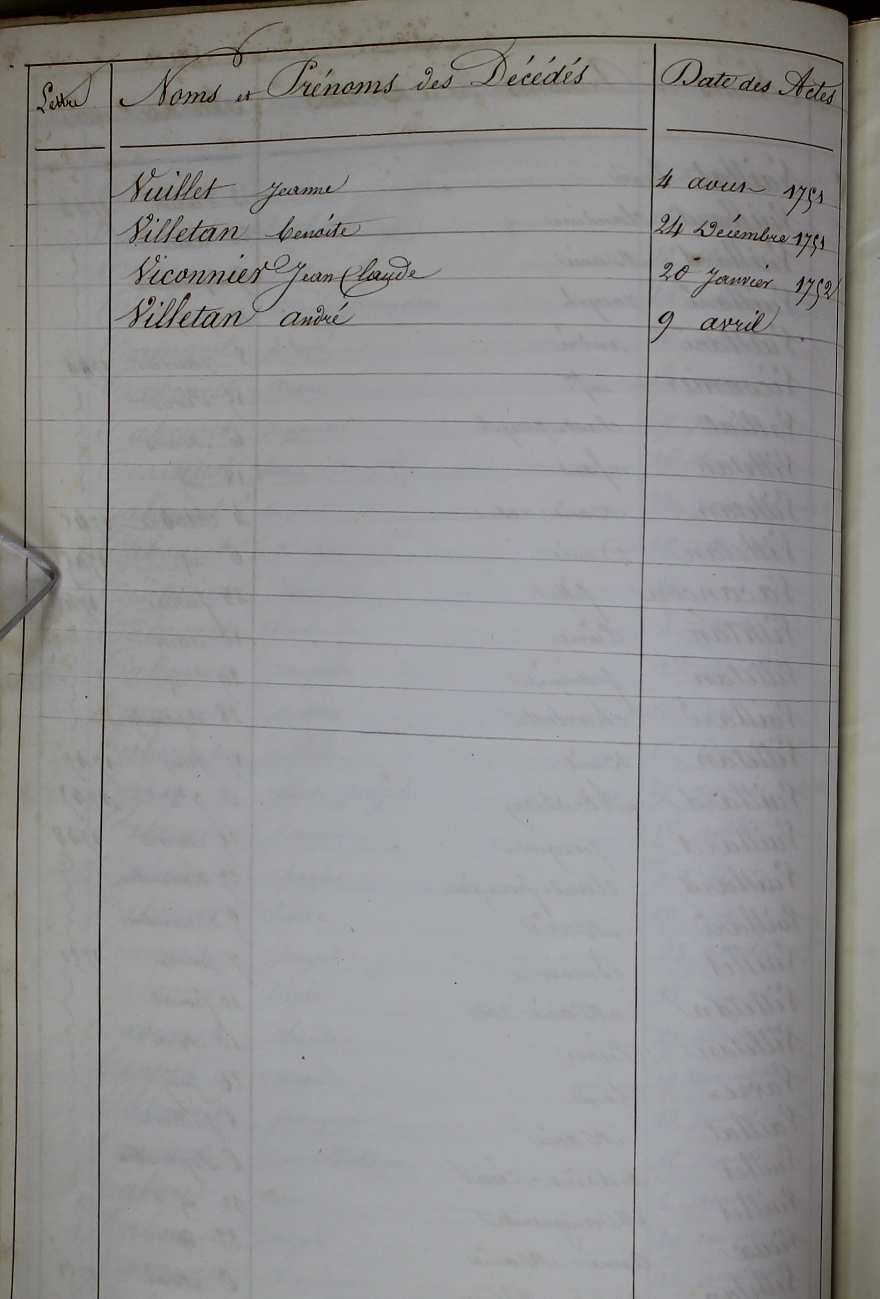 Lettre Noms et Prénoms des Décédés Date des Actes
Vuillet Jeanne 4 aoust 1751
Villetan benoite 24 Décembre 1751
Viconnier Jean Claude 20 Janvier 1752
Villetan andré 9 avril